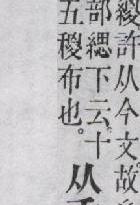 緵許从今文故
部緦下云十
五稯布也。从